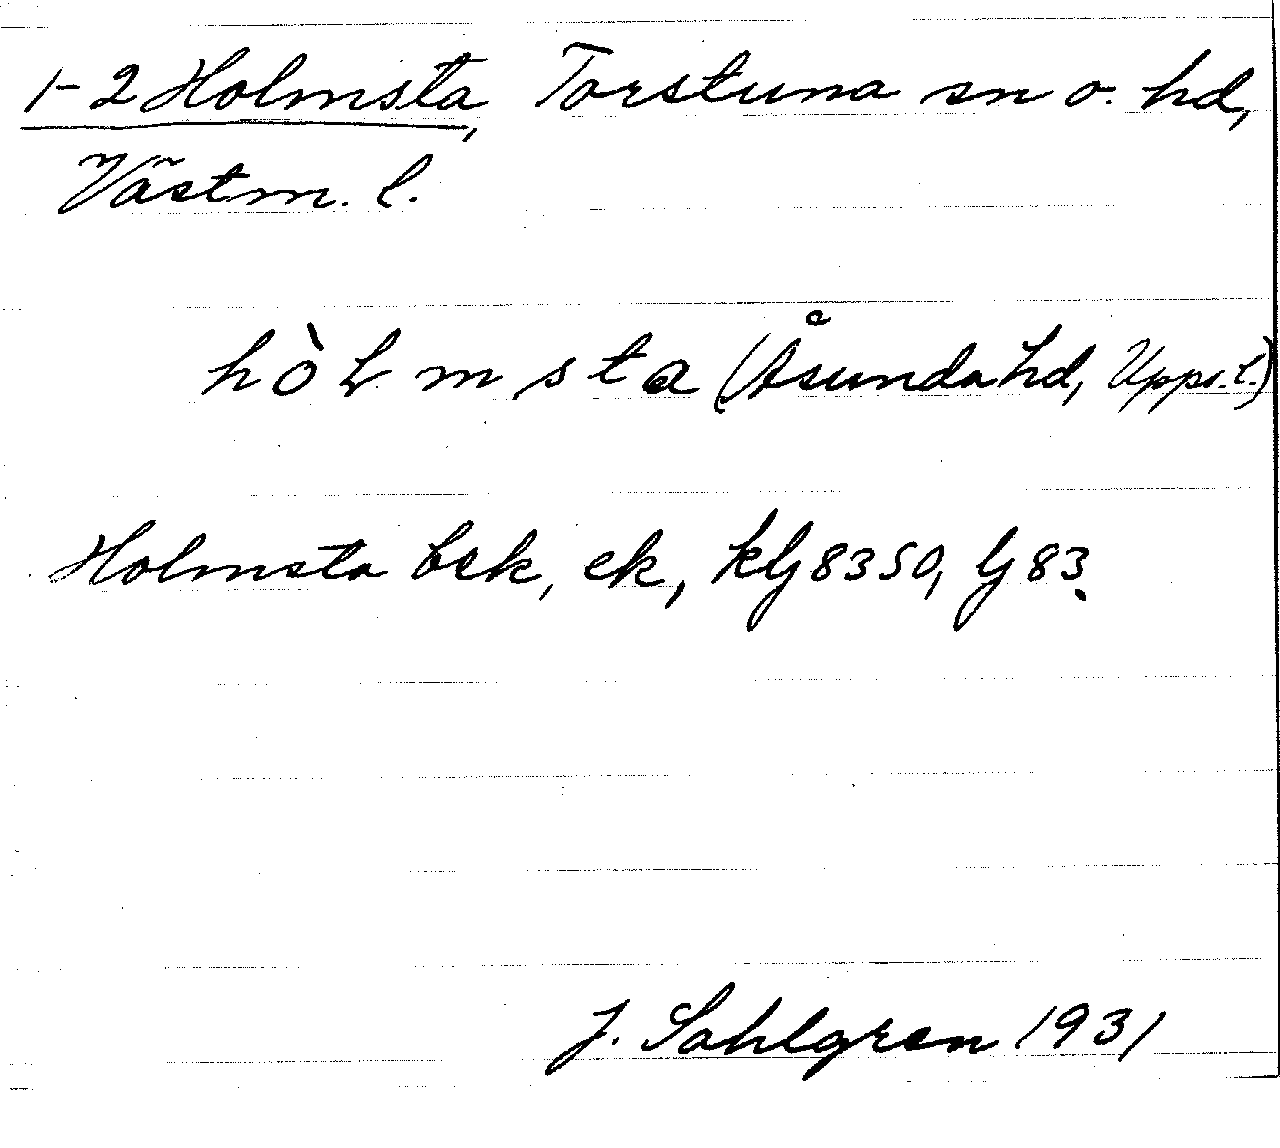 1-2 Holmsta, Torstuna sn o. hd,
Västm. l.
hòLmsta (Åsunda hd, Upps. l.)
Holmsta bek, ek, klj 8350, lj 83.
J. Sahlgren 1931